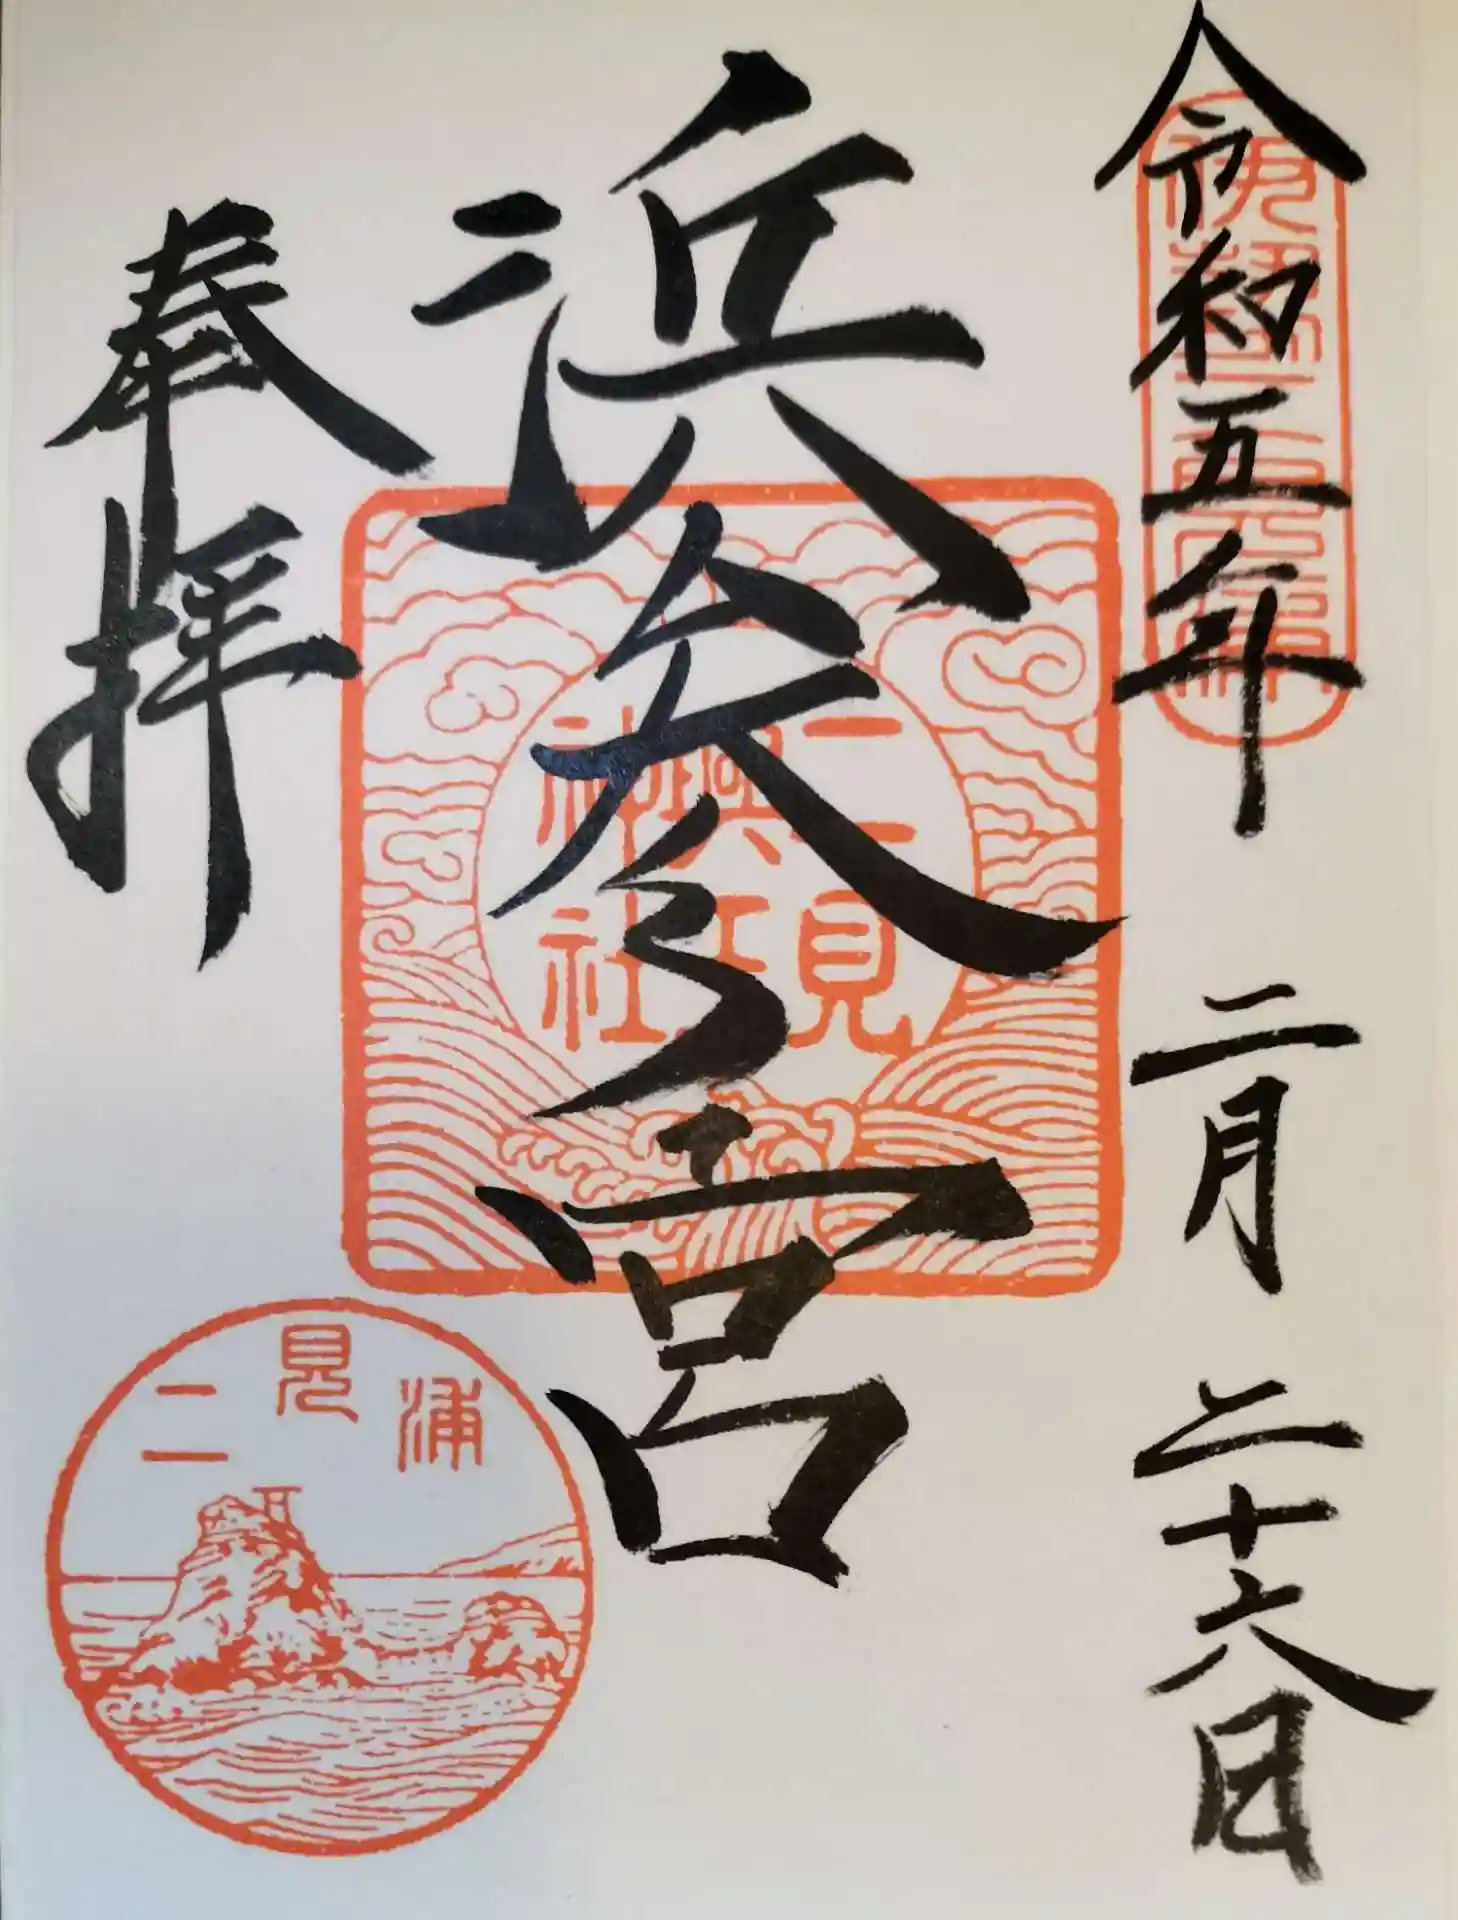 令和五年 二月 二十六日
浜参宮
二見
興玉
神社
奉拝
二見浦